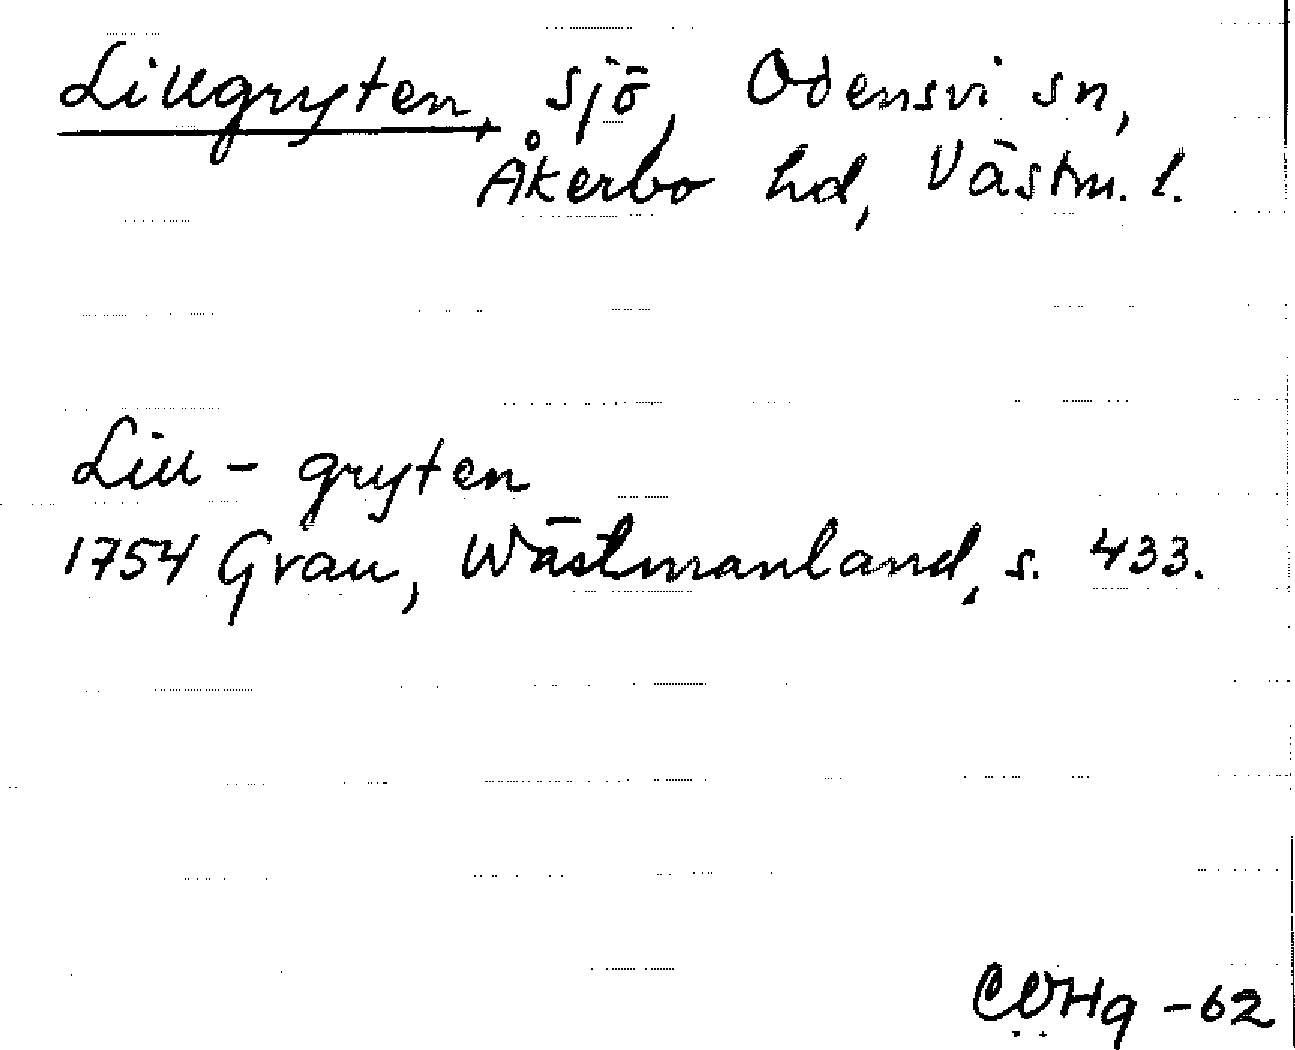 Lillgryten, sjö, Odensvi sn,
Åkerbo hd, Västm. l.
Lill - gryten
1754 Grau, Wästmanland, s. 433.
CWHg -62